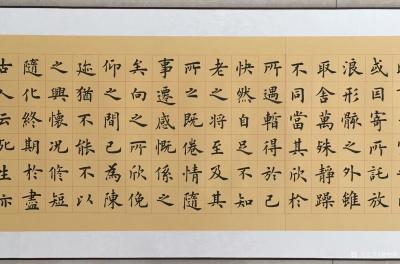 或因寄所託放
浪形骸之外雖
取舍萬殊靜躁
不同當其欣於
所遇暫得於己
快然自足不知
老之將至及其
所之既倦情隨
事遷感慨係之
矣向之所欣俛
仰之間已為陳
迹猶不能不以
之興懷況修短
隨化終期於盡
古人云死生亦